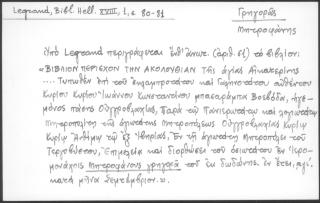 Legrand, Bibl. Hell. XVIII, 1, σ. 80-81
Γρηγορᾶς
Μητροφάνης
Ὑπὸ Legrand περιγράφεται ἐνθ' ἀνωτ. (ἀριθ. 61) τὸ βιβλίον:
«ΒΙΒΛΙΟΝ ΠΕΡΙΕΧΟΝ ΤΗΝ ΑΚΟΛΟΥΘΙΑΝ ΤΗΣ ἁγίας Αἰκατερίνης
.... Τυπωθὲν ἐπὶ τοῦ ἐκλαμπροτάτου καὶ Γαληνοτάτου αὐθέντου
Κυρίου Κυρίου Ἰωάννου Κωνσταντίνου Μπασαράμπα Βοεβόδα, Ἡγε-
μόνος πάσης Οὐγγροβλαχίας, Παρὰ τοῦ Πανιερωτάτου καὶ λογιωτάτου
Μητροπολίτου τῆς ἁγιωτάτης Μητροπόλεως Οὐγγροβλαχίας Κυρίου
Κυρίου Ἀνθίμου τοῦ ἐξ Ἰβηρίας. Ἐν τῇ ἁγιωτάτῃ Μητροπόλει τοῦ
Τεργοβύστου, Ἐπιμελείᾳ καὶ διορθώσει τοῦ ὁσιωτάτου ἐν Ἱερο-
μονάχοις Μητροφάνους γρηγορᾶ τοῦ ἐκ δωδώνης. ἐν ἔτει, αψι,
κατὰ μῆνα Σεπτέμβριον.».